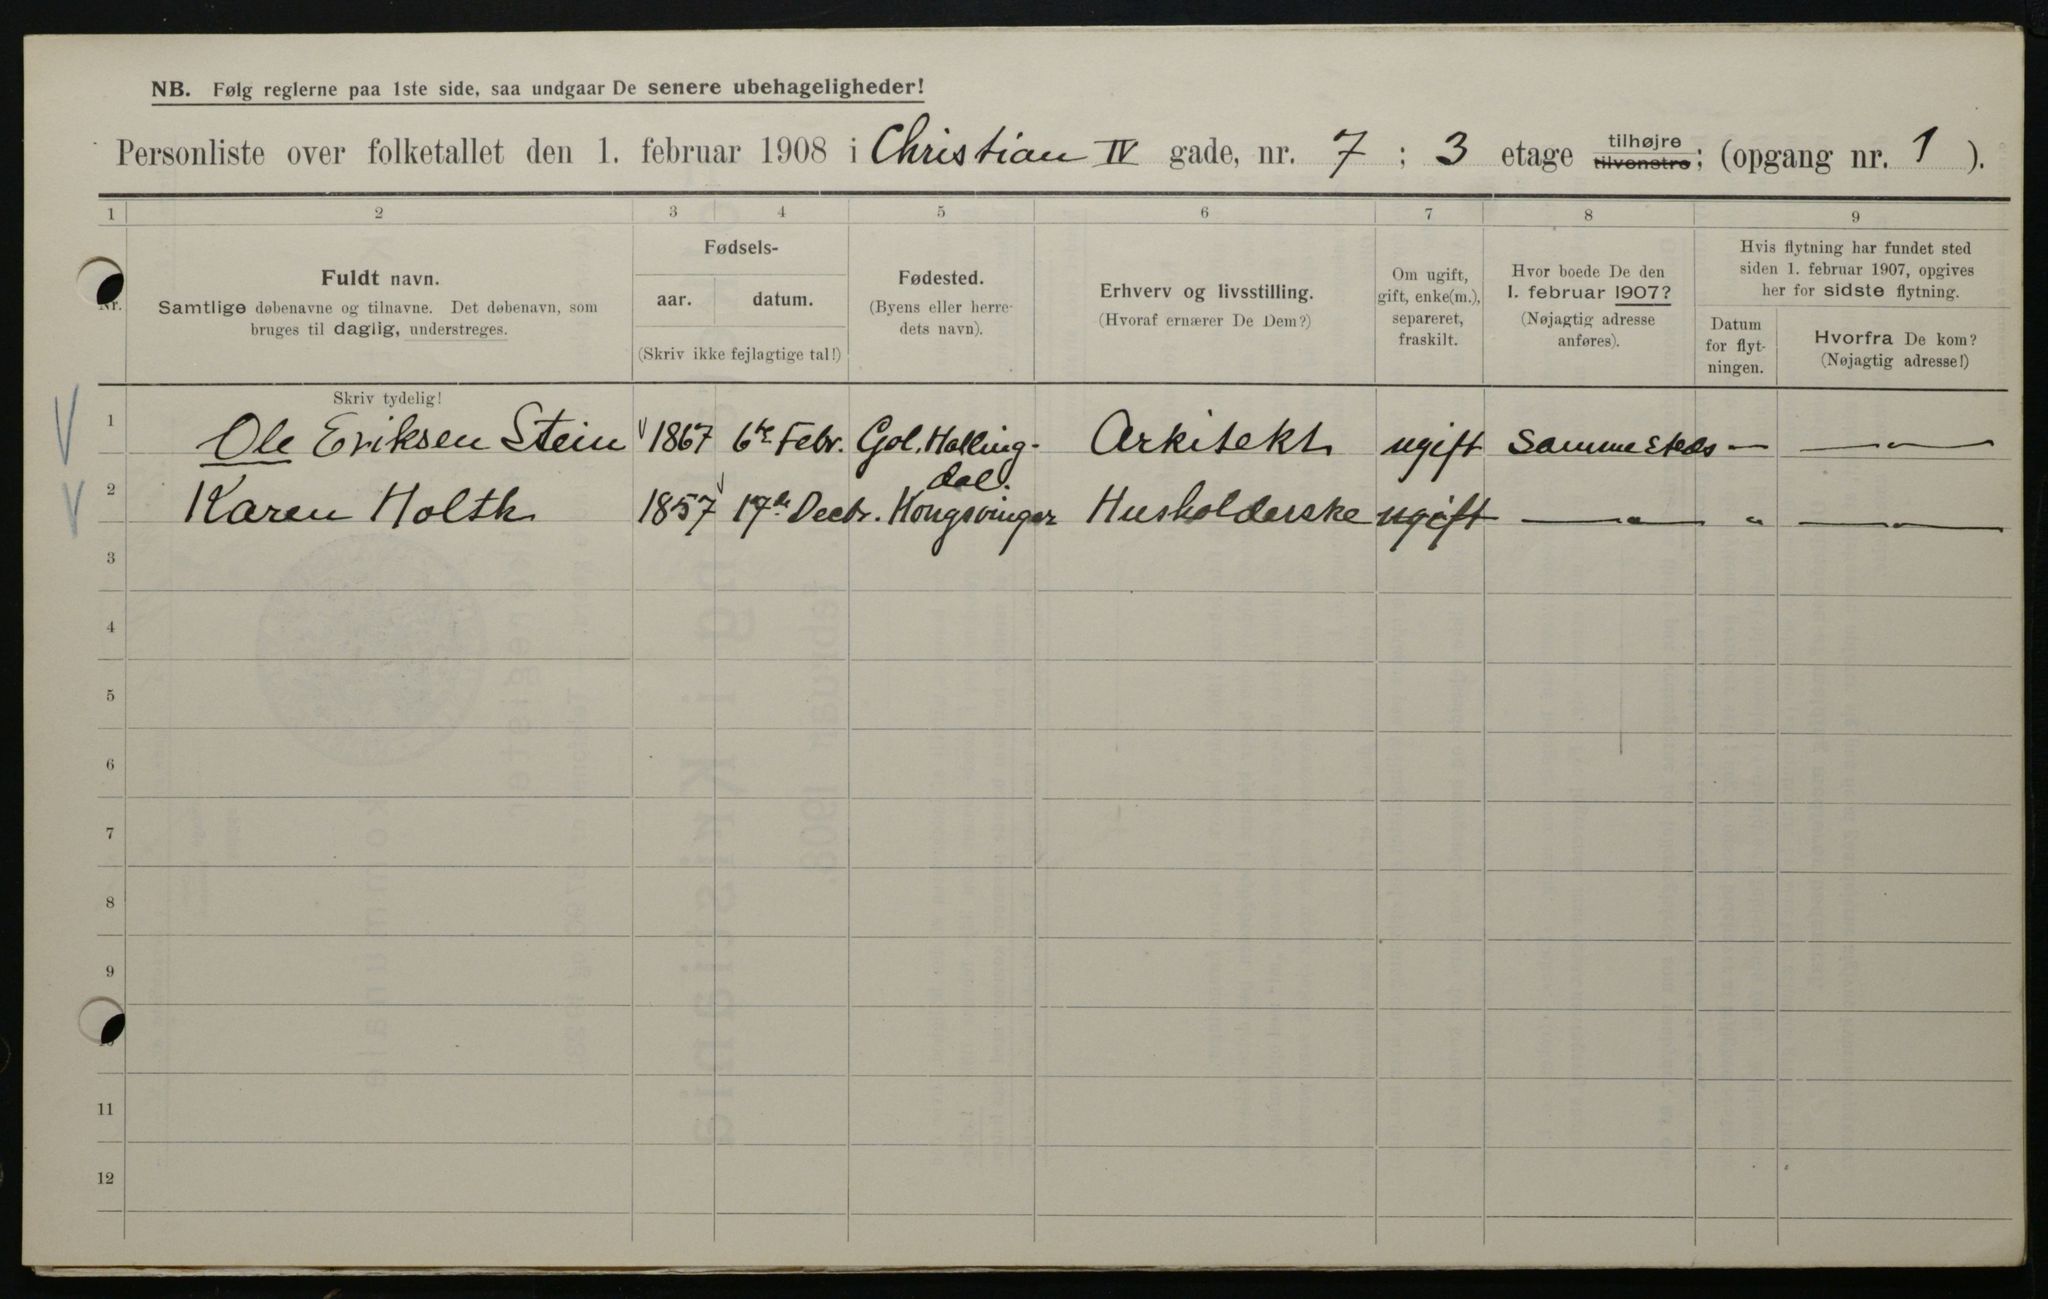 NB. Følg reglerne paa 1ste side, saa undgaar De senere ubehageligheder!
Personliste over folketallet den 1. februar 1908 i Christian IV gade, nr. 7; 3 etage tilhøjre tilvenstre; (opgang nr. 1).
1 2 3 4 5 6 7 8 9
Nr.
Fuldt navn.
Samtlige døbenavne og tilnavne. Det døbenavn, som
bruges til daglig, understreges.
Fødsels-
aar. datum.
(Skriv ikke fejlagtige tal!)
Fødested.
(Byens eller herre-
dets navn).
Erhverv og livsstilling.
(Hvoraf ernærer De Dem?)
Om ugift,
gift, enke(m.),
separeret,
fraskilt.
Hvor boede De den
1. februar 1907?
(Nøjagtig adresse
anføres).
Hvis flytning har fundet sted
siden 1. februar 1907, opgives
her for sidste flytning.
Datum
for flyt-
ningen.
Hvorfra De kom?
(Nøjagtig adresse!)
Skriv tydelig!
1 Ole Eriksen Stein 1867 6te Febr. Gol. Halling-
dal. Arkitekt ugift Sammesteds — — " —
2 Karen Holth 1857 17de Decbr. Kongsvinger Husholderske ugift — " — " — " —
3
4
5
6
7
8
9
10
11
12